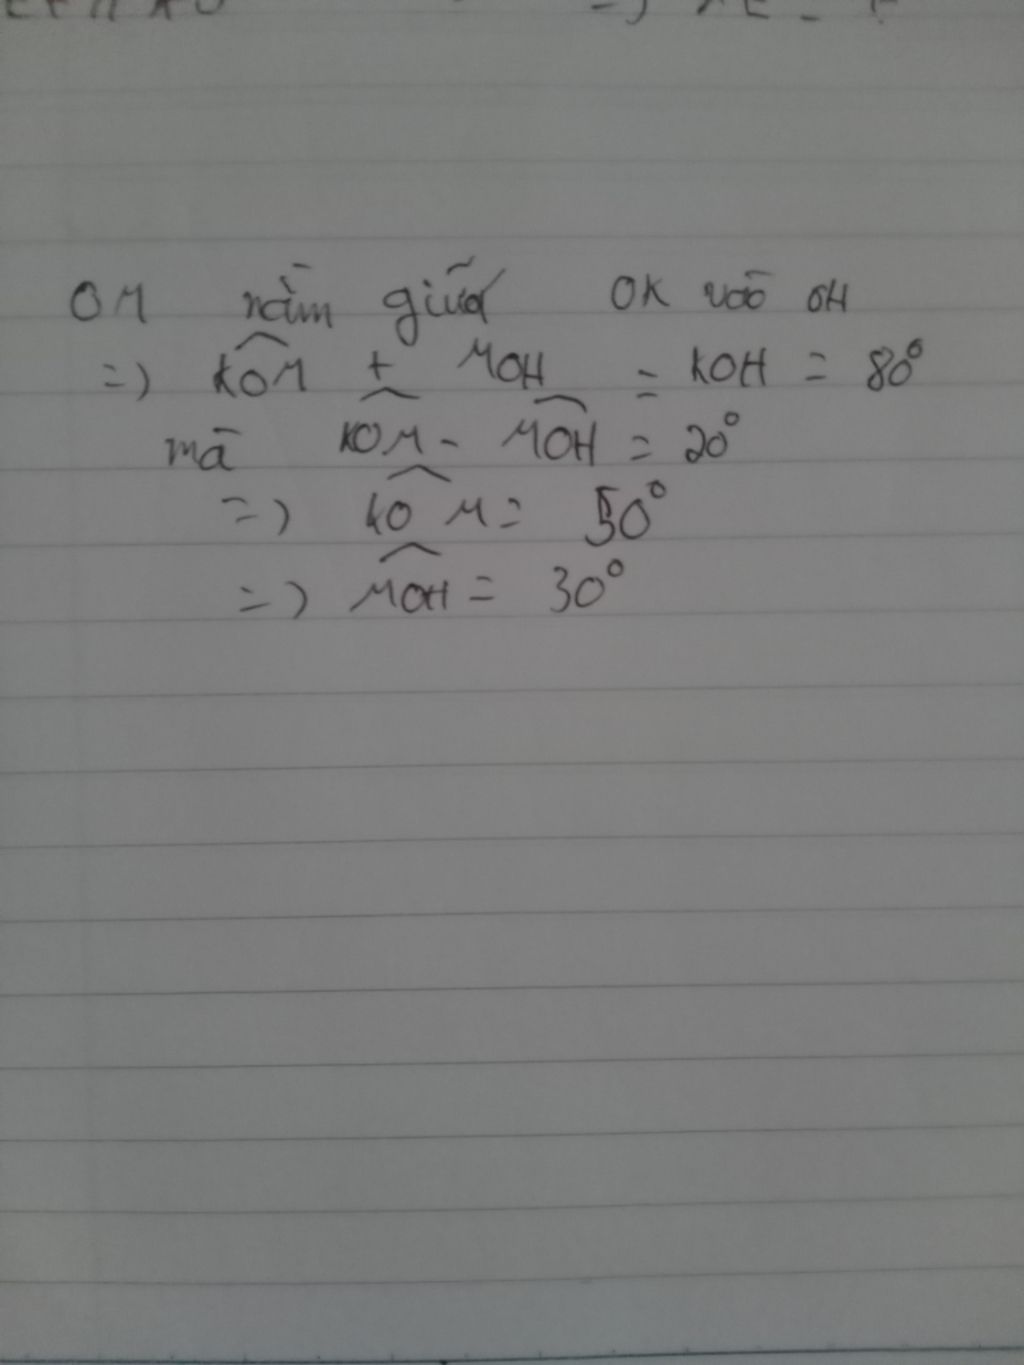 OM nằm giữa OK vào OH
=) KOM + MOH = KOH = 80°
mà KOM - MOH = 20°
=) KOM = 50°
=) MOH = 30°